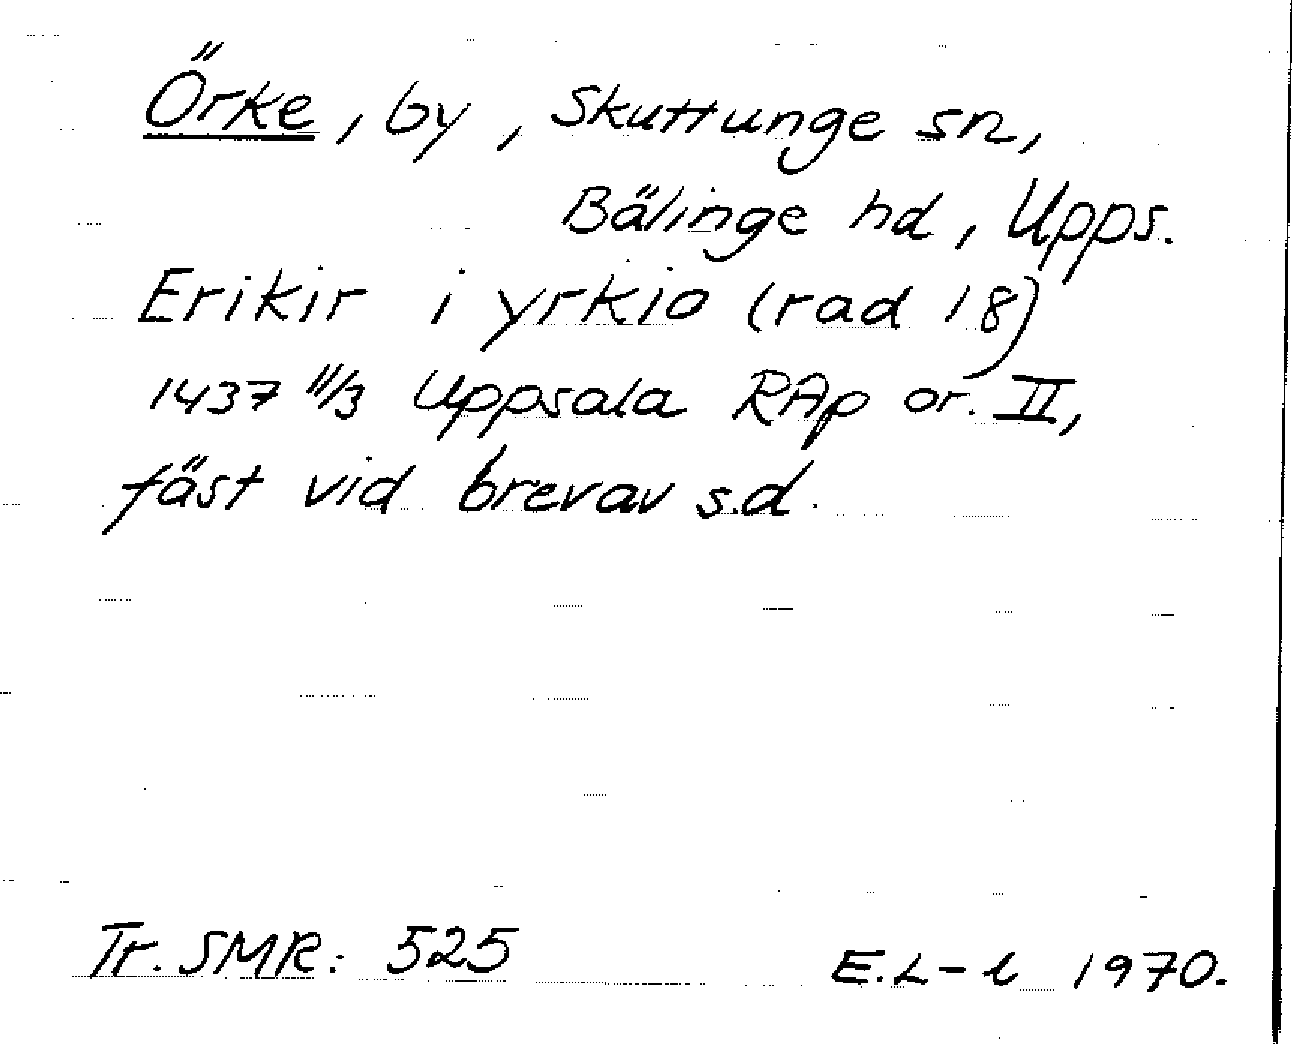 Örke, by, Skuttunge sn,
Bälinge hd, Upps.
Erikir i yrkio (rad 18)
1437 11/3 Uppsala RAp or. II,
fäst vid brevav s.d.
Tr. SMR: 525
E.L-l 1970.